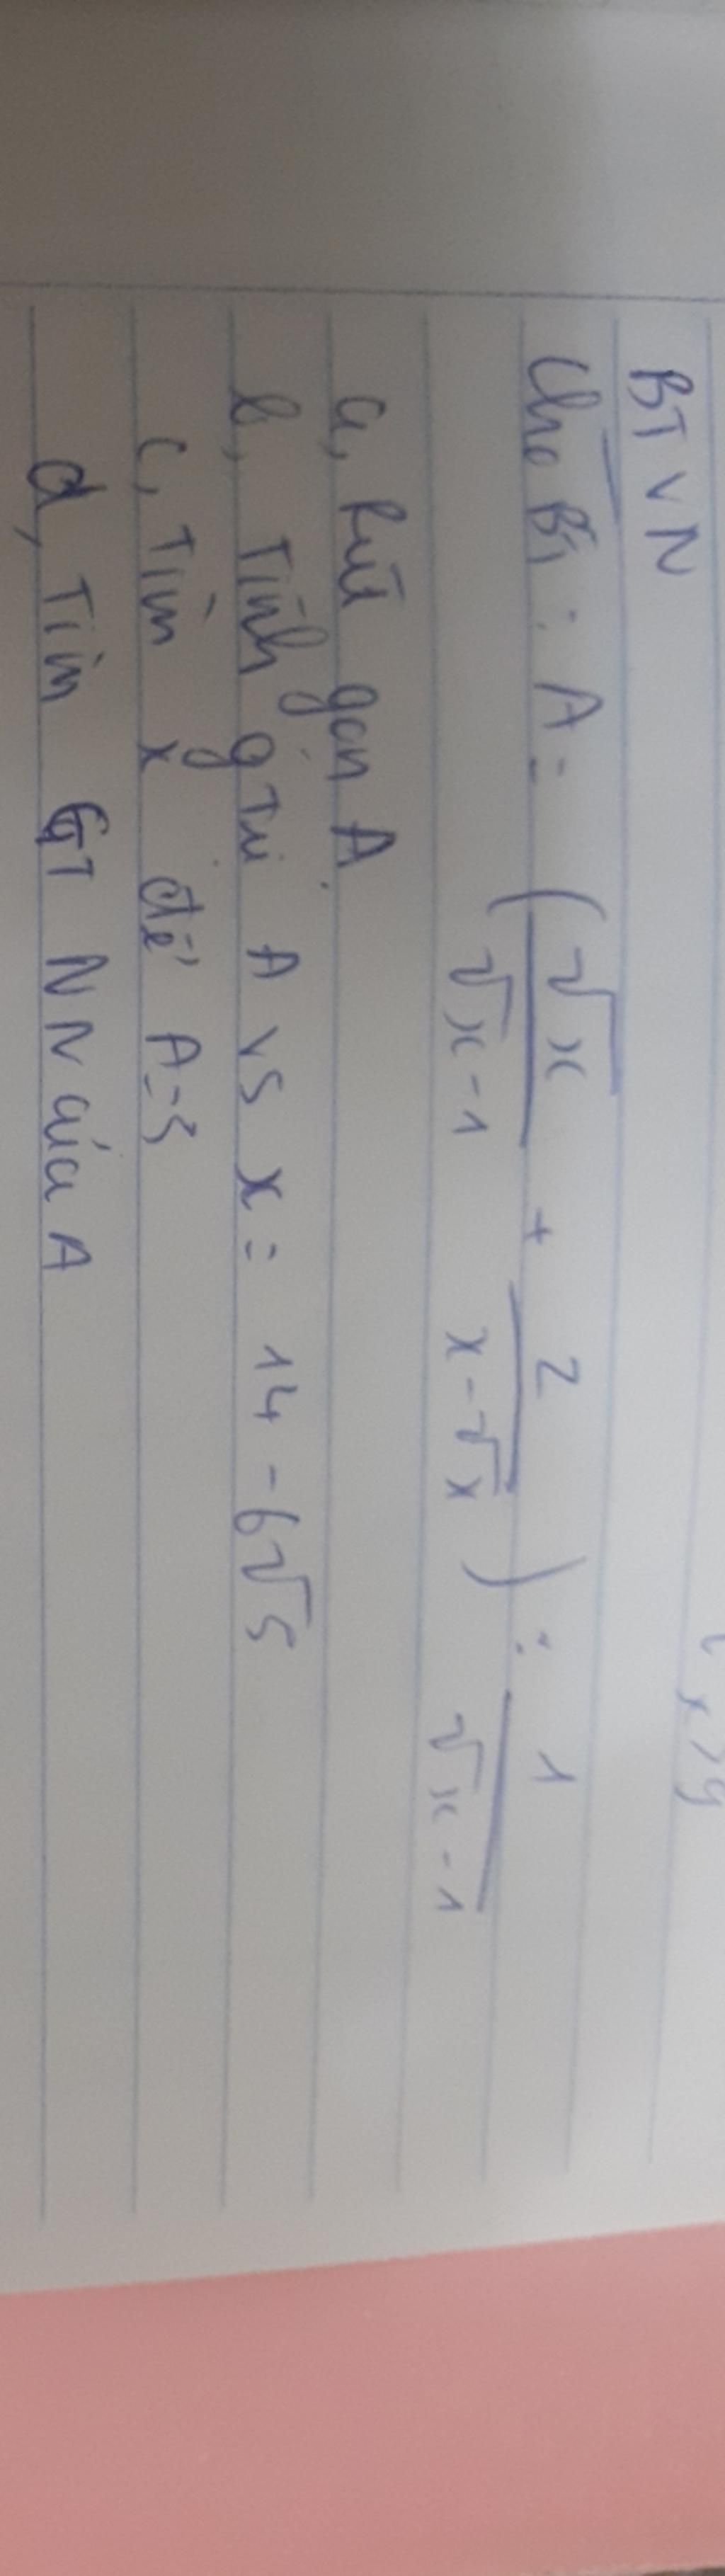 x > 9
BTVN
Cho BT : A = ( √x / √x - 1 + 2 / x - √x ) : 1 / √x - 1
a, Rút gọn A
b, Tính gTrị A vs x = 14 - 6√5
c, Tìm x để A=3
d, Tìm GT NN của A